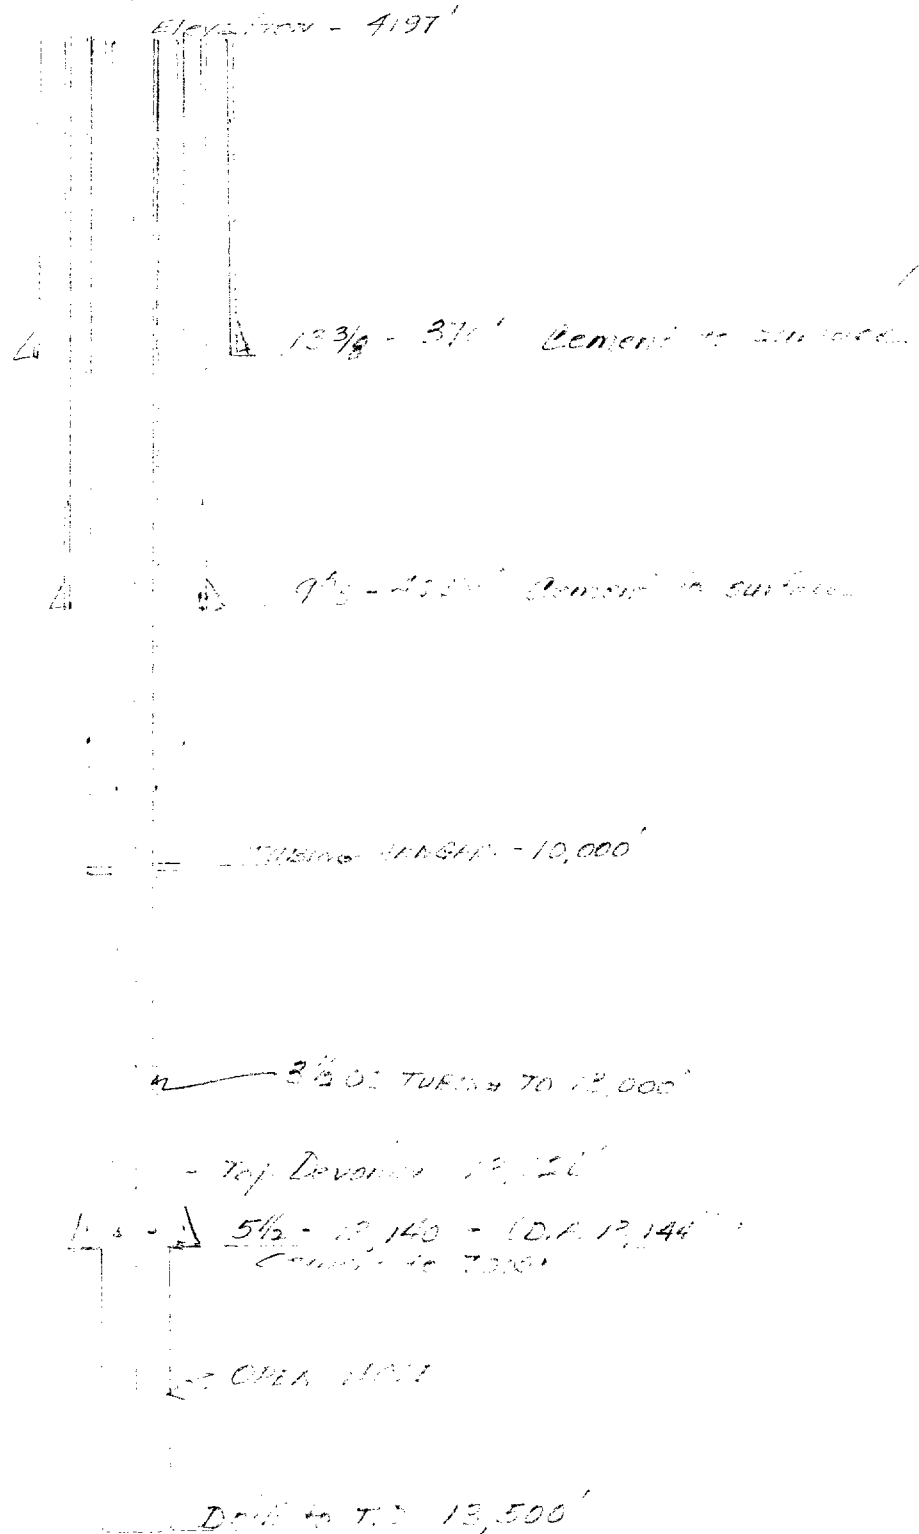 Elevation - 4197'
13 3/8 - 370' Cement to surface
9 5/8 - Cement to surface
TUBING HANGAR - 10,000'
3 1/2 OD TUBING TO 12,000'
Top Devonian
5 1/2 - 12,140 - (D.F. 12,144')
Cement to
OPEN HOLE
Drill to T.D. 13,500'